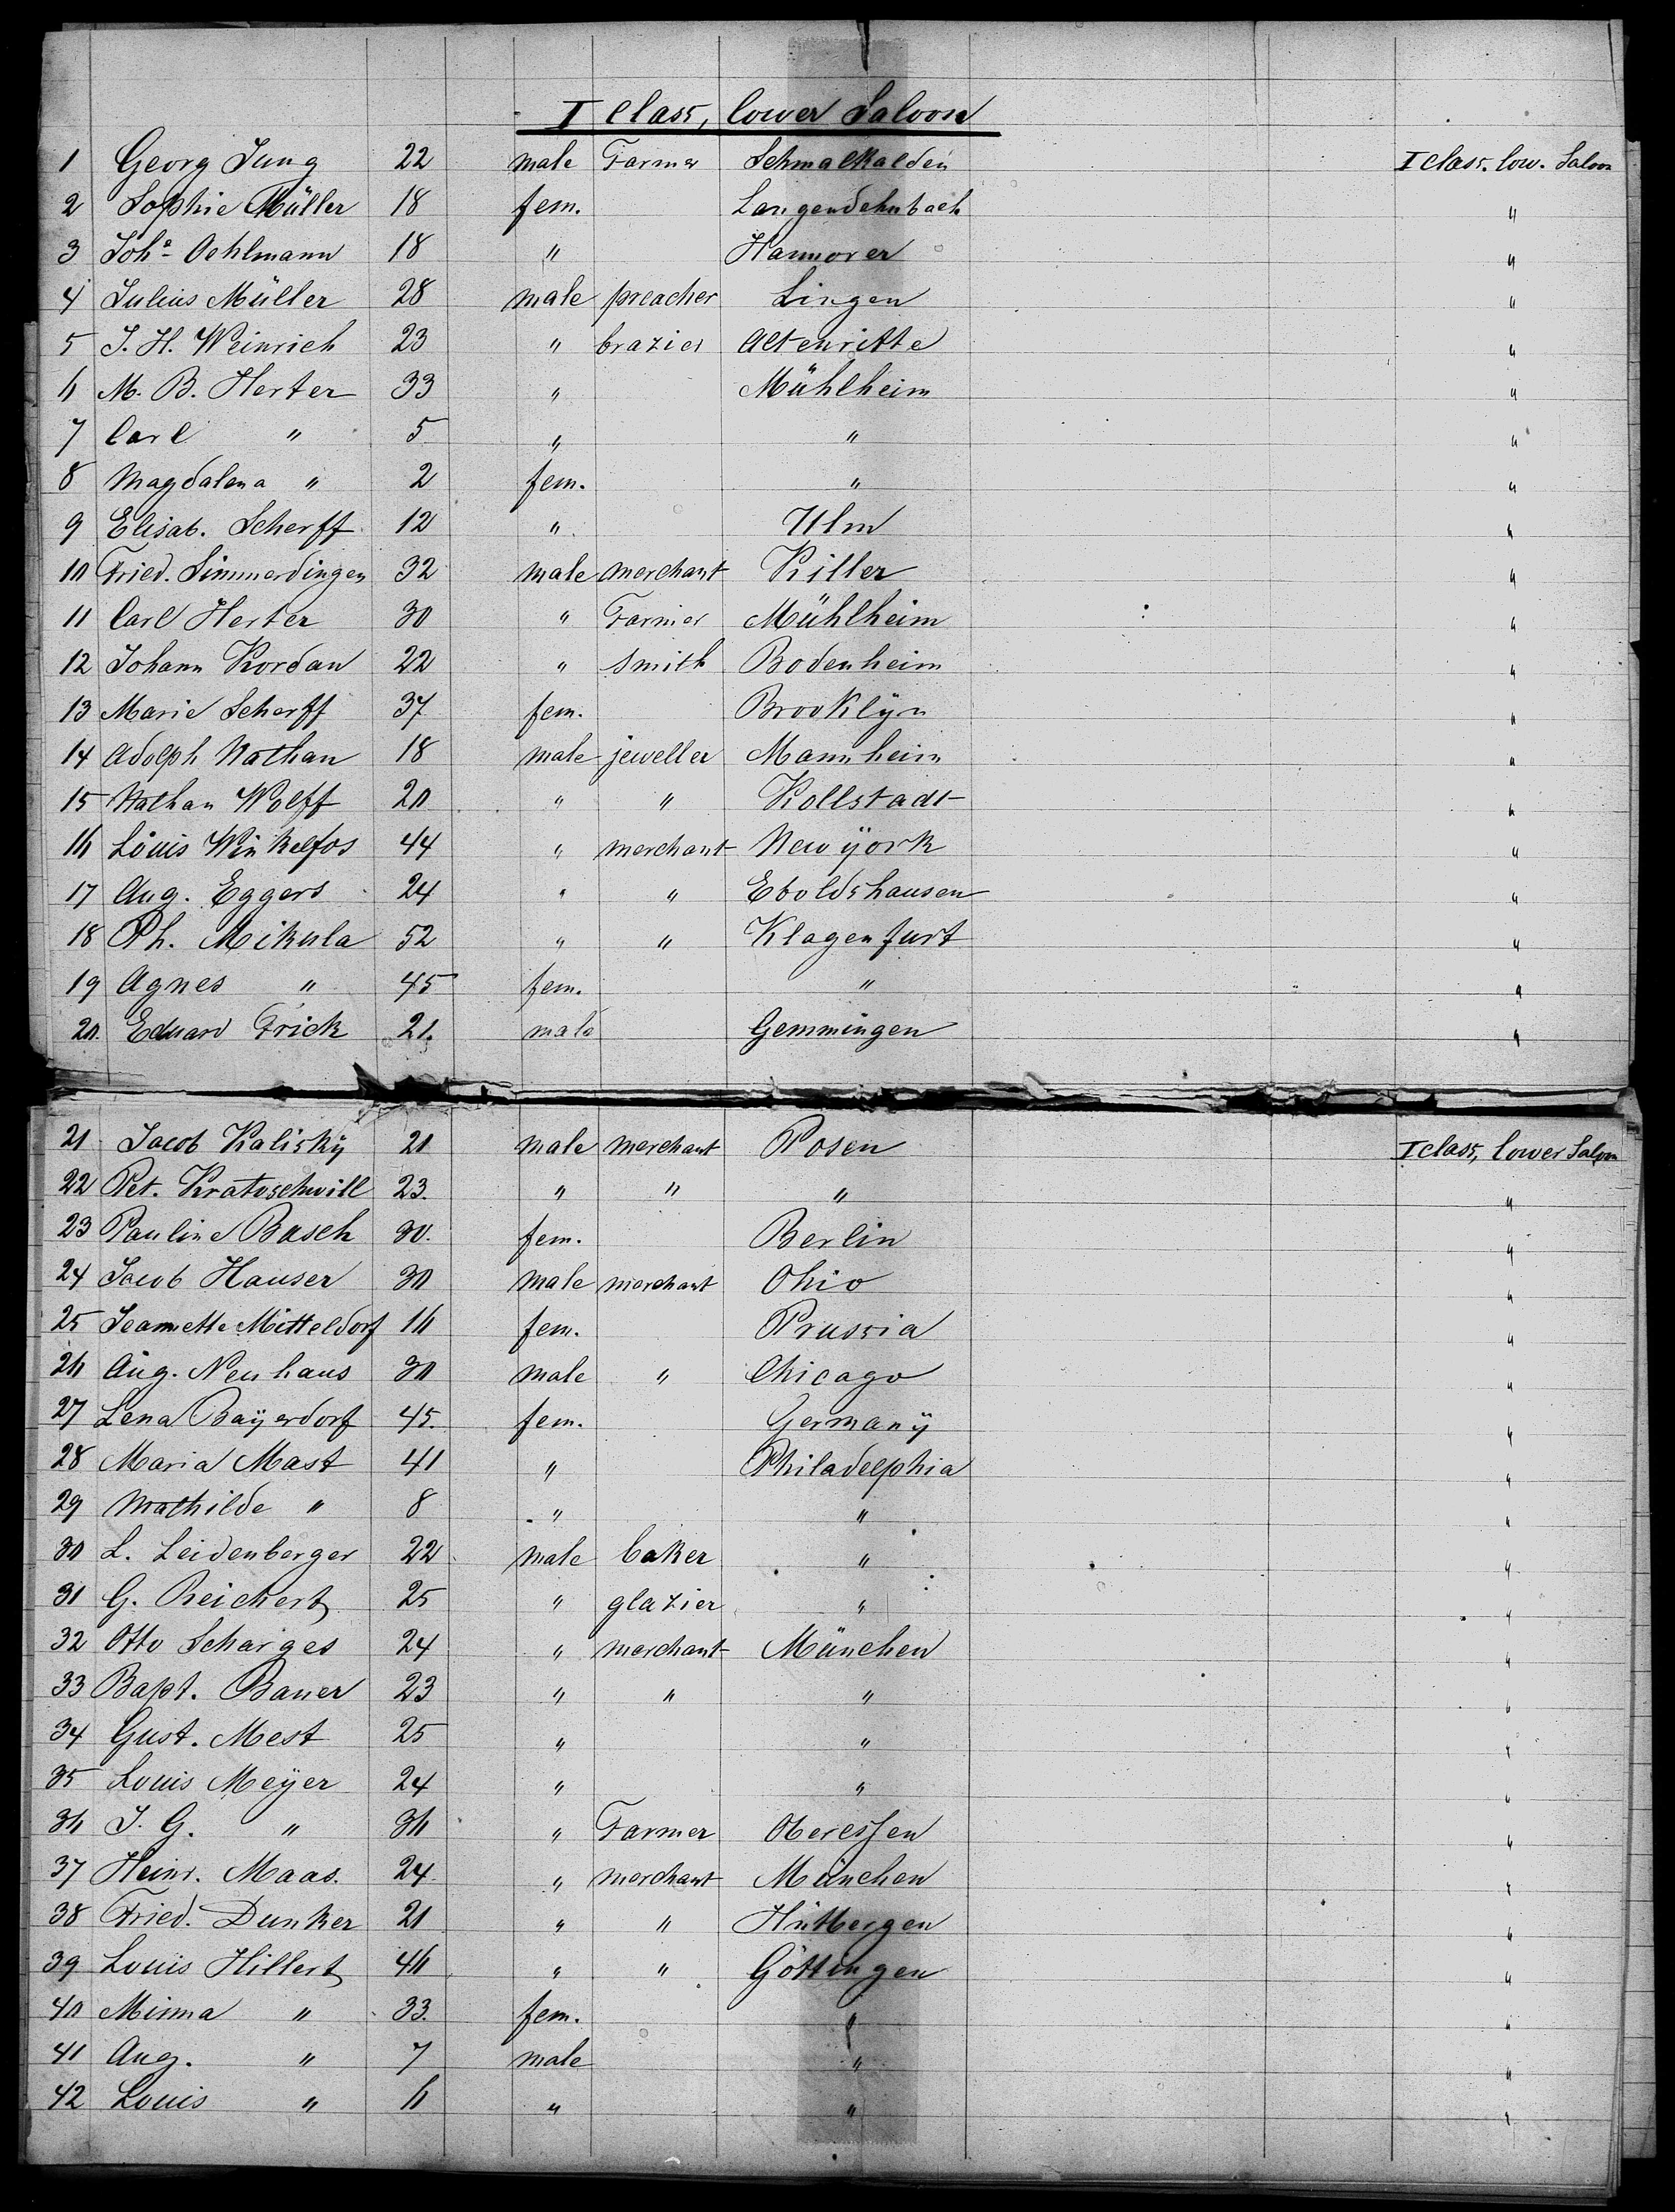 I Class, lower Saloon
1 Georg Jung 22 male Farmer Schmalkalden I class. low. Saloon
2 Sophie Müller 18 fem. Langendehnbach "
3 Joh^a Oehlmann 18 " Hannover "
4 Julius Müller 28 male preacher Lingen "
5 J. H. Weinrich 23 " brazier Altenritte "
6 M. B. Herter 33 " Mühlheim "
7 Carl " 5 " " "
8 Magdalena " 2 fem. " "
9 Elisab. Scherff 12 " Ulm "
10 Fried. Simmerdingen 32 male merchant Killer "
11 Carl Herter 30 " Farmer Mühlheim "
12 Johann Kordan 22 " smith Bodenheim "
13 Marie Scherff 37 fem. Brooklÿn "
14 Adolph Nathan 18 male jeweller Mannheim "
15 Nathan Wolff 20 " " Kollstadt "
16 Louis Winkelfos 44 " merchant New ÿork "
17 Aug. Eggers 24 " " Eboldshausen "
18 Ph. Mikula 52 " " Klagenfurt "
19 Agnes " 45 fem. " "
20. Eduard Frick 21. male Gemmingen "
21 Jacob Kaliskÿ 21 male merchant Posen I class, lower Saloon
22 Pet. Kratoschwill 23. " " " "
23 Pauline Basch 30. fem. Berlin "
24 Jacob Hauser 30 male merchant Ohio "
25 Jeannette Mitteldorf 16 fem. Prussia "
26 Aug. Neuhaus 30 male " Chicago "
27 Lena Baÿerdorf 45. fem. Germanÿ "
28 Maria Mast 41 " Philadelphia "
29 Mathilde " 8 " " "
30 L. Leidenberger 22 male baker " "
31 G. Reichert 25 " glazier " "
32 Otto Scharges 24 " merchant München "
33 Bapt. Bauer 23 " " " "
34 Gust. Mest 25 " " "
35 Louis Meÿer 24 " " "
36 J. G. " 36 " Farmer Oberessen "
37 Heinr. Maas. 24 " merchant München "
38 Fried. Dunker 21 " " Hütbergen "
39 Louis Hillert 46 " " Göttingen "
40 Minna " 33. fem. " "
41 Aug. " 7 male " "
42 Louis " 6 " " "